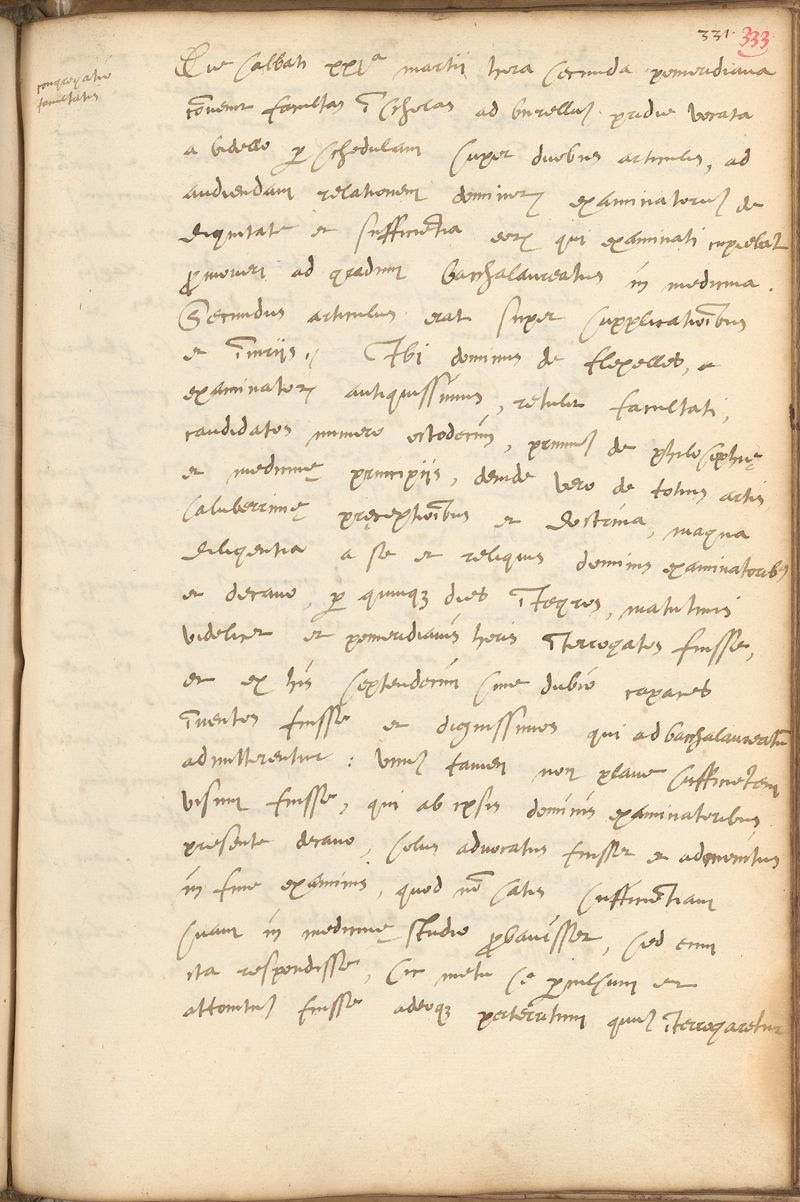 331. 333
congregatio
facultatis
Die sabbati xxj^a martii hora secunda pomeridiana
cōvenit facultas ī scholas ad burellū pridie vocata
a bidello ꝑ schedulam super duobus articulis, ad
audiendam relationem dominorꝝ examinatorū de
dignitate et sufficiētia eorꝝ qui examinati cupiebāt
ꝓmoveri ad gradum bacchalaureatus in medicina.
Secundus articulus erat super supplicatiōibus
et īiuriis. Ibi dominus de flexelles, e
examinatorꝝ antiquissimus, retulit facultati,
candidatos numero octodecim, primū de philosophię
et medicinę principiis, deinde vero de totius artis
saluberrimę pręceptiōibus et doctrina, magna
diligentia a se et reliquis dominis examinatoribꝰ
et decano, ꝑ quinqꝫ dies ītegros, matutinis
videlicet et pomeridianis horis īterrogatos fuisse,
et ex his septendecim sine dubio capaces
īventos fuisse et dignissimos qui ad bacchalaureatū
admitterentur: unū tamen non plane sufficiētem
visum fuisse, qui ab ipsis dominis examinatoribus
presente decano, solus advocatus fuisset et admonitus
in fine examinis, quod nō satis sufficiētiam
suam in medicinę studio ꝓbavisset, sed enim
ita respondisse, sic metu se ꝑculsum et
attonitū fuisse adeoqꝫ perterritum quū īterrogaretur